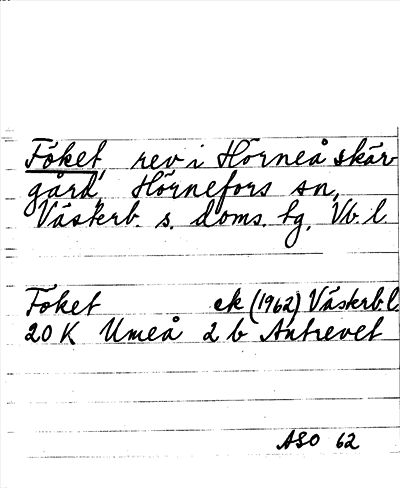 Föket, rev i Hörneå skär
gård, Hörnefors sn,
Västerb. s. doms. tg, Vb. l
Föket ek (1962) Västerb. l
20 K Umeå 2 b Antrevet
ASO 62